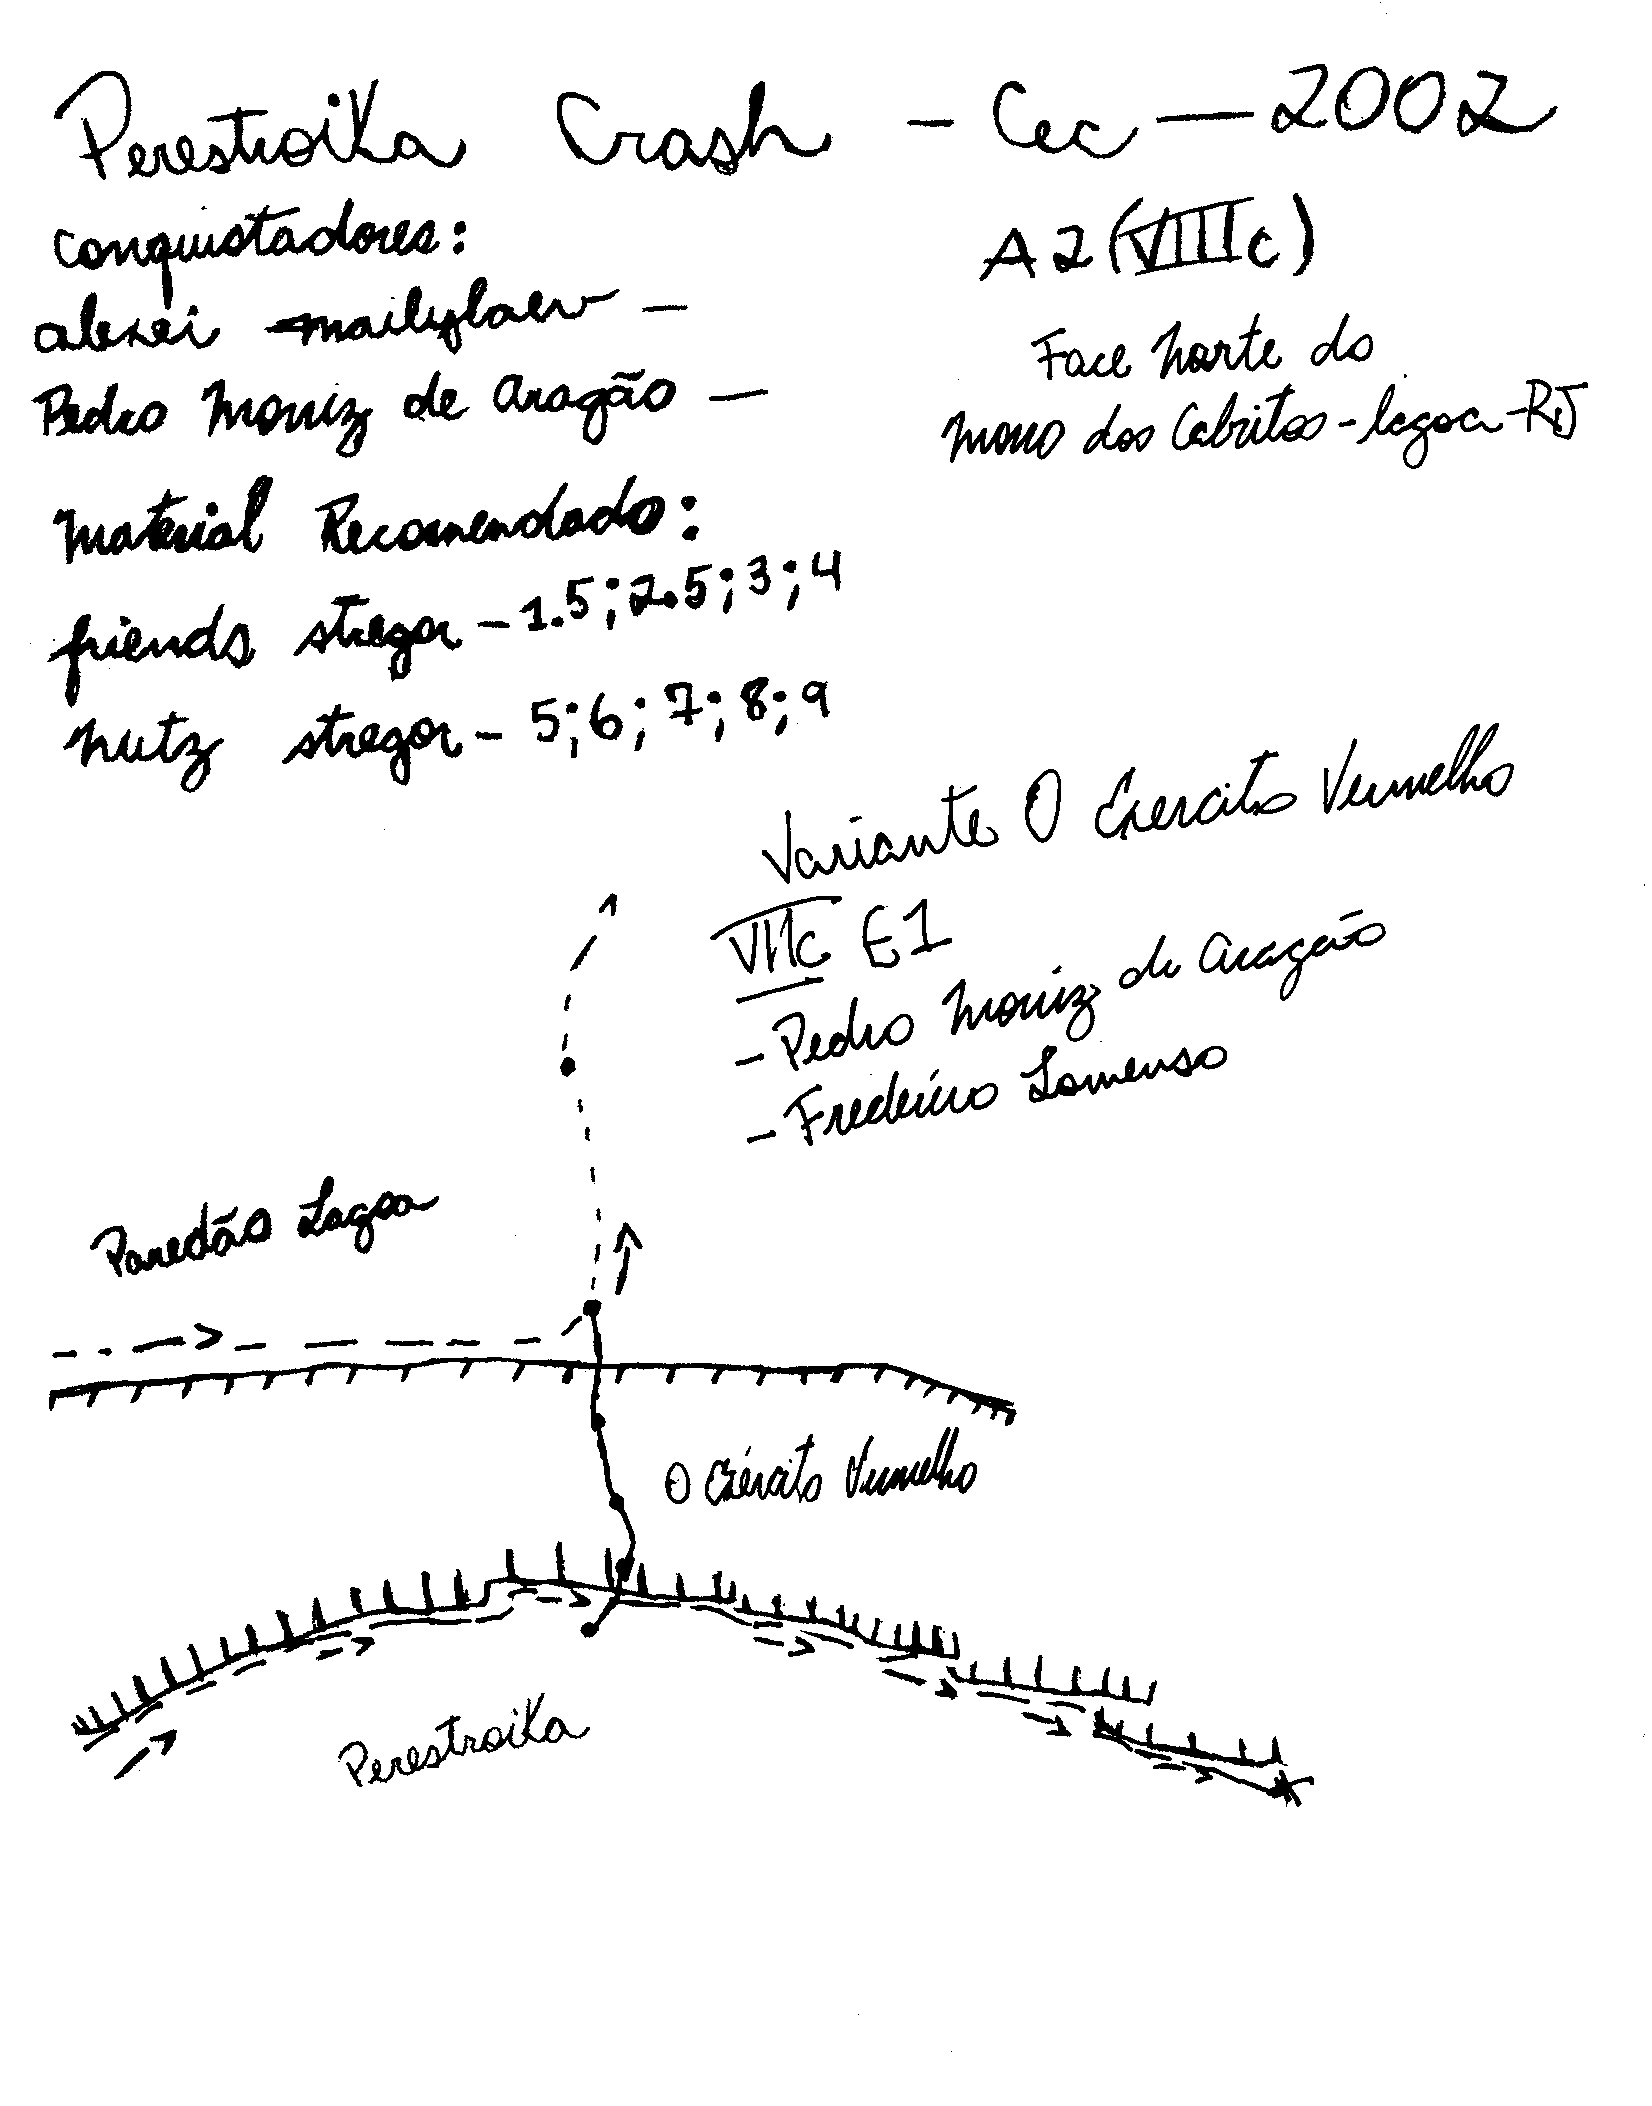 Perestroika Crash - Cec - 2002
Conquistadores:
A2 (VIIIc)
alexei
Pedro Moniz de Aragão -
Face Norte do
Morro dos Cabritos - lagoa - RJ
Material Recomendado:
friends stregor - 1.5; 2.5; 3; 4
Nutz stregor - 5; 6; 7; 8; 9
Variante O Exercito Vermelho
VIIc E1
- Pedro Moniz de Aragão
- Frederico
Paredão Lagoa
O Exército Vermelho
Perestroika